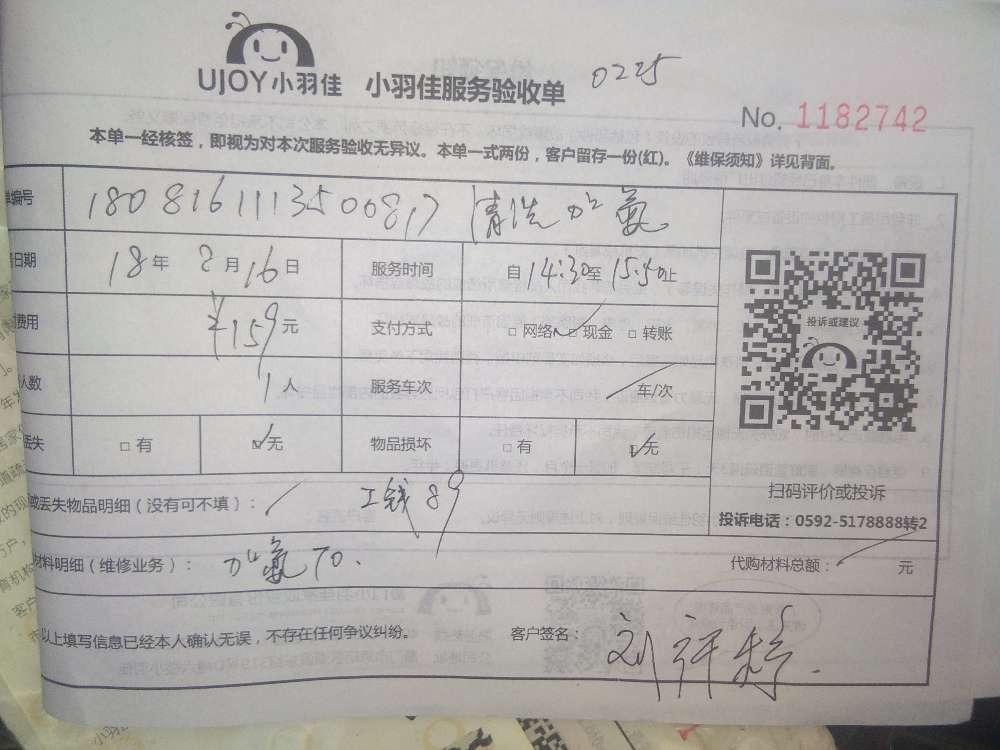 UJOY小羽佳 小羽佳服务验收单 0225
No. 1182742
本单一经核签，即视为对本次服务验收无异议。本单一式两份，客户留存一份(红)。《维保须知》详见背面。
单编号 1808161113500817 清洗加氨
日期 18年 8月16日 服务时间 自14:30至15:40止
费用 ¥159元 支付方式 □网络✓ □现金 □转账
人数 1人 服务车次 /车/次
丢失 □有 ☑无 物品损坏 □有 ☑无
或丢失物品明细（没有可不填）： / 工钱89
材料明细（维修业务）： 加氨70. 代购材料总额： / 元
以上填写信息已经本人确认无误，不存在任何争议纠纷。 客户签名：
投诉或建议
扫码评价或投诉
投诉电话：0592-5178888转2